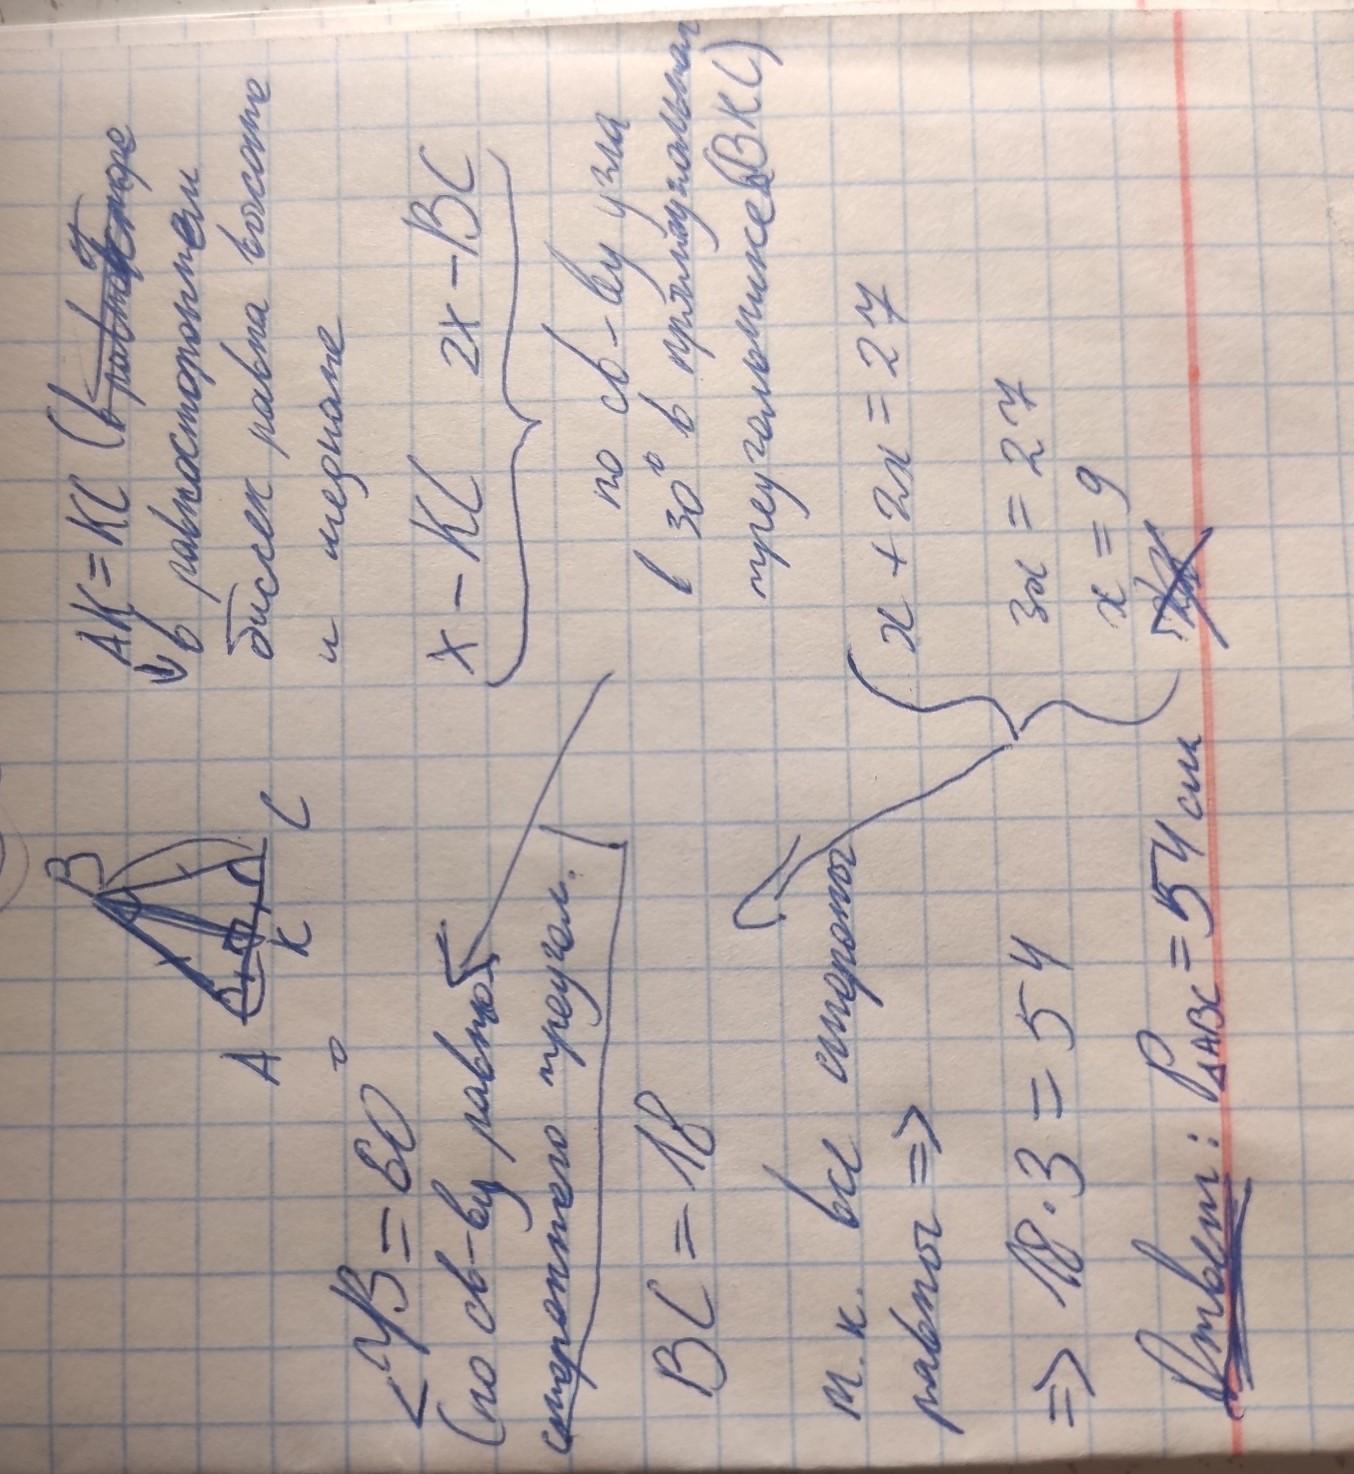 B
A
K
C
<B = 60°
(по св-ву равно
стороннего треугол.
BC = 18
т.к. все стороны
равны =>
=> 18 · 3 = 54
Ответ: P△ABC = 54 см
AK = KC (в
в равностороннем
бисек равна высоте
и медиане
x - KC 2x - BC
по св-ву угла
в 30° в прямоугольном
треугольнике (BKC)
x + 2x = 27
3x = 27
x = 9